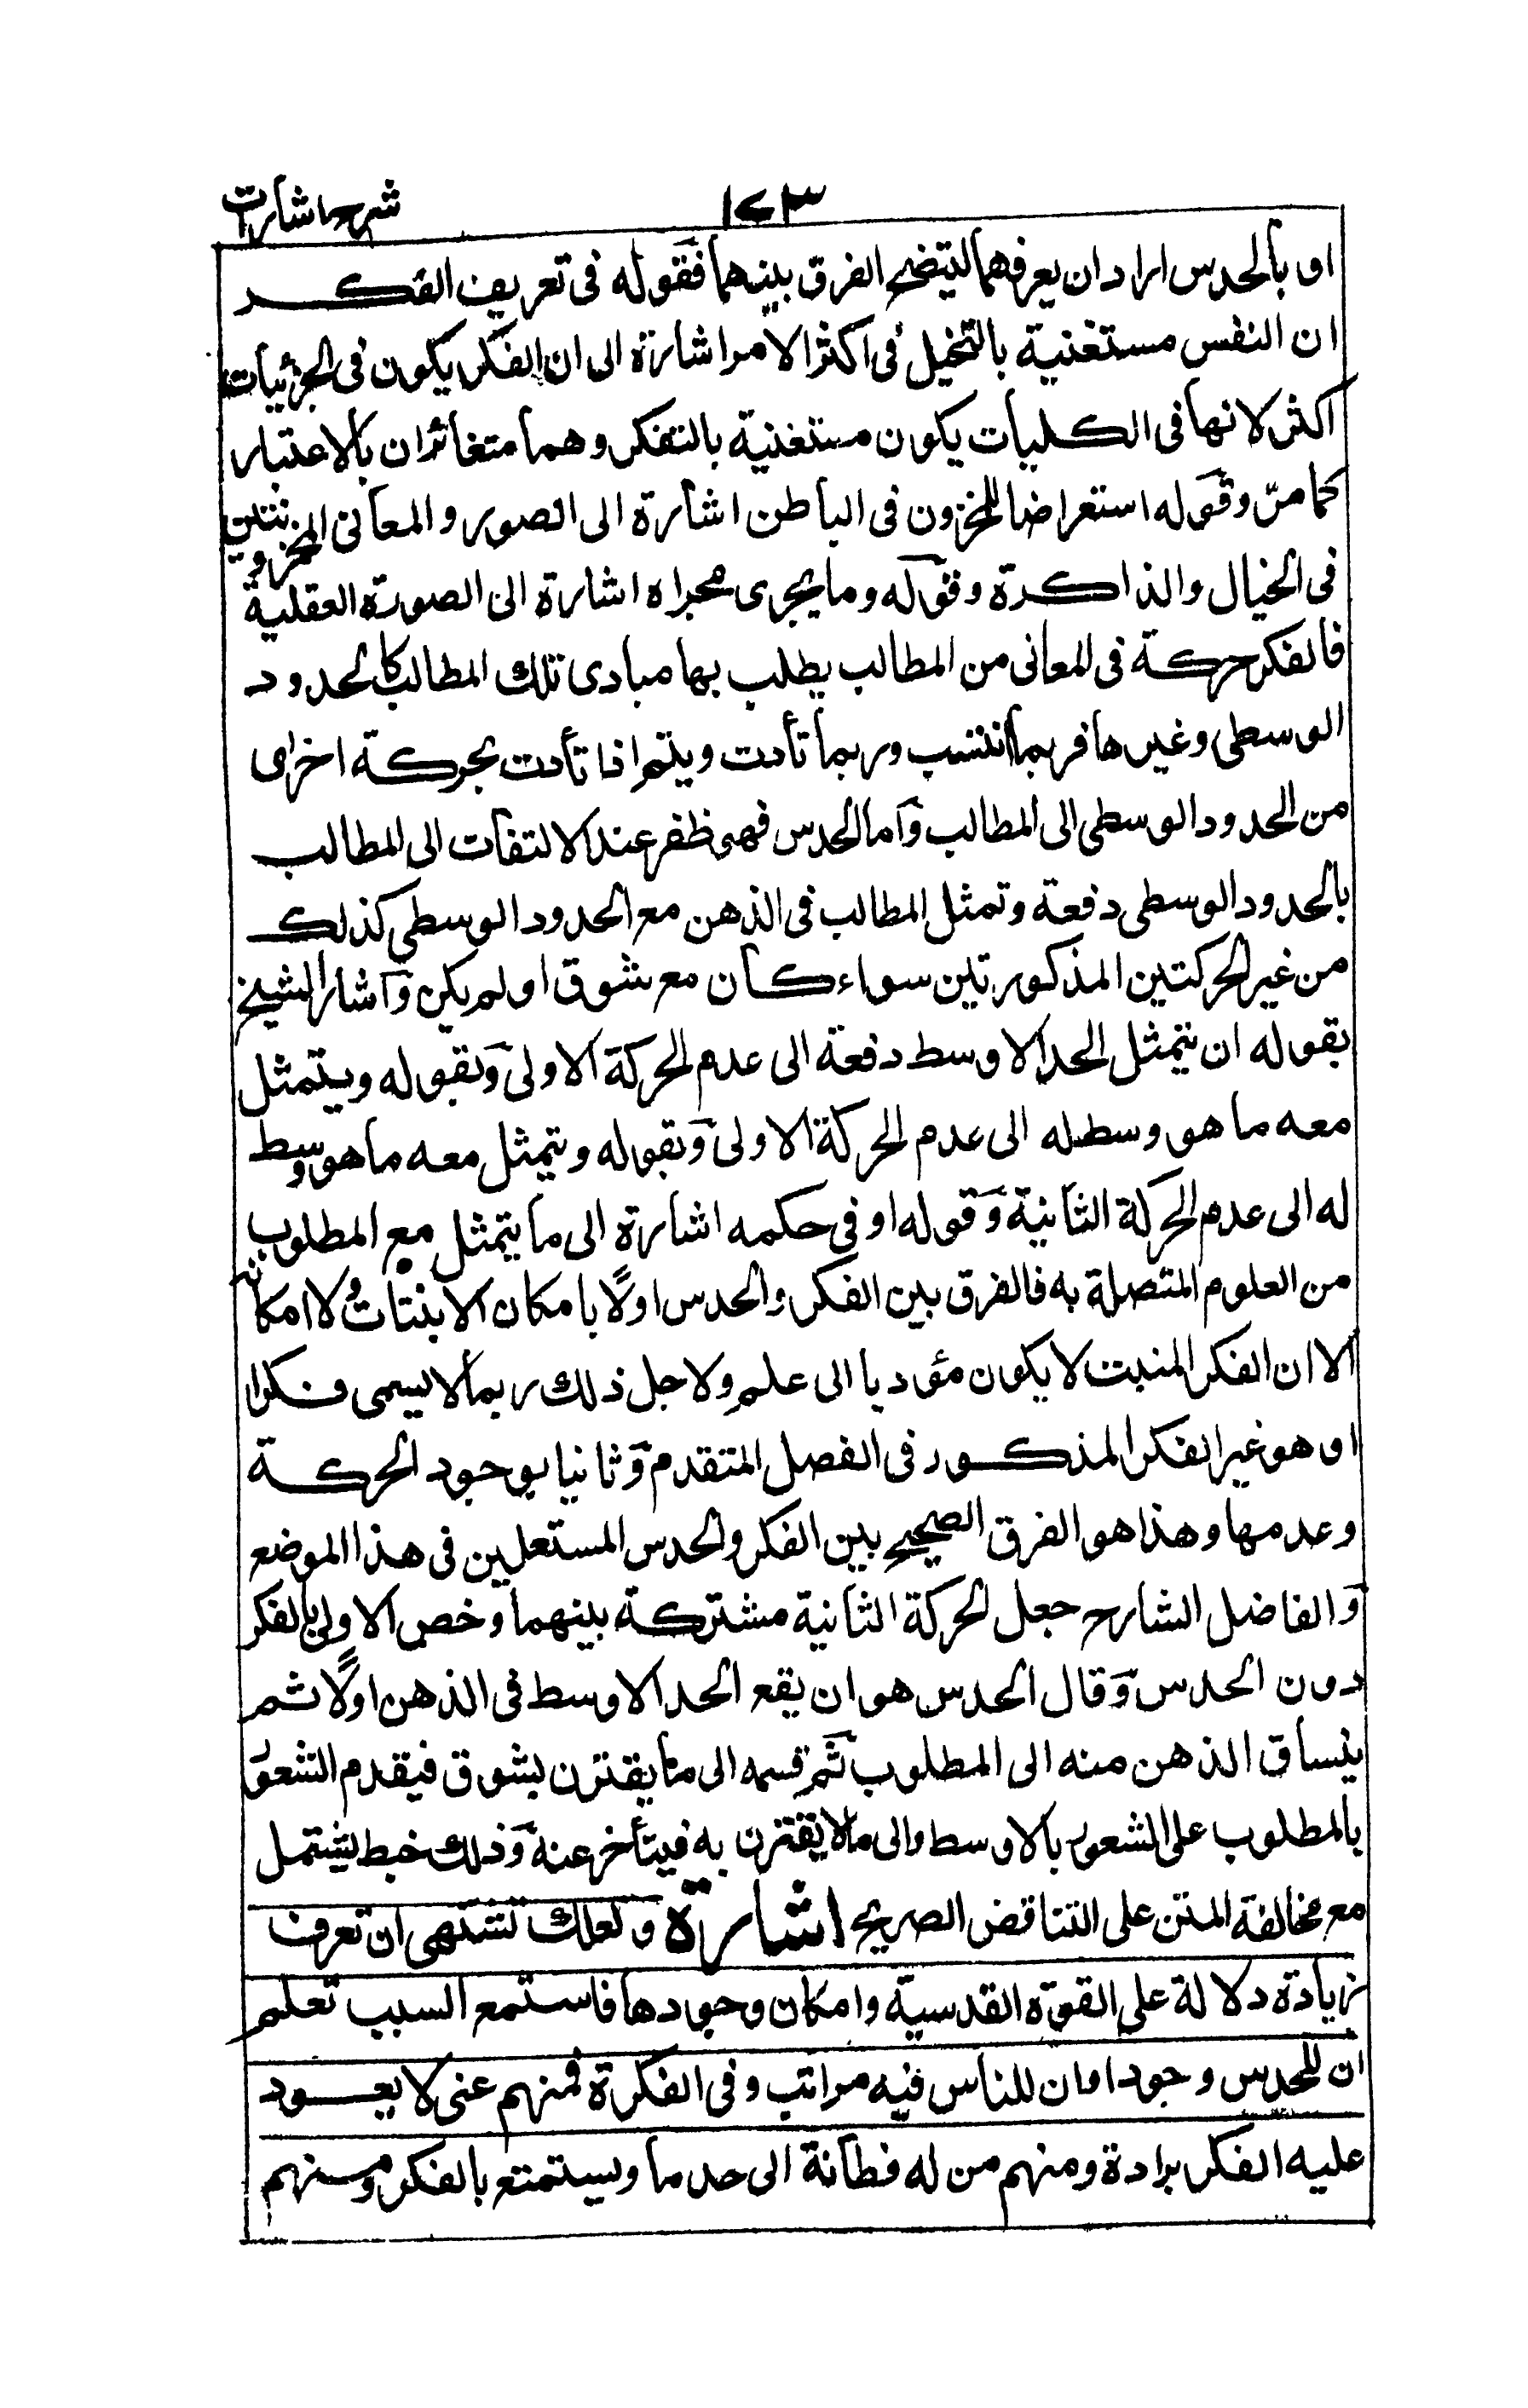 شرح اشارات ١٢٣
او بالحدس اراد ان يعرفهما ليتضح الفرق بينهما فقوله فى تعريف الفكر
ان النفس مستغنية بالتخيل فى اكثر الامر اشارة الى ان الفكر يكون فى الجزئيات
اكثر لانها فى الكليات يكون مستغنية بالتفكر وهما متغائران بالاعتبار
كما مرّ وقوله استعراضا للمخزون فى الباطن اشارة الى الصور والمعانى المخزونتين
فى الخيال والذاكرة وقوله وما يجرى مجراه اشارة الى الصورة العقلية
فالفكر حركة فى المعانى من المطالب يطلب بها مبادى تلك المطالب كالحدود
الوسطى وغيرها فربما انبتت وربما تأدت ويتم اذا تأدت بحركة اخرى
من الحدود الوسطى الى المطالب وأما الحدس فهو ظفر عند الالتفات الى المطالب
بالحدود الوسطى دفعة وتمثل المطالب فى الذهن مع الحدود الوسطى كذلك
من غير الحركتين المذكورتين سواء كان مع شوق او لم يكن وأشار الشيخ
بقوله ان يتمثل الحد الاوسط دفعة الى عدم الحركة الاولى وبقوله ويتمثل
معه ما هو وسط له الى عدم الحركة الاولى وبقوله ويتمثل معه ما هو وسط
له الى عدم الحركة الثانية وقوله او فى حكمه اشارة الى ما يتمثل مع المطلوب
من العلوم المتصلة به فالفرق بين الفكر والحدس اولًا بامكان الانبتات ولا امكانه
الا ان الفكر المنبت لا يكون مؤديا الى علم ولاجل ذلك ربما لا يسمى فكرا
او هو غير الفكر المذكور فى الفصل المتقدم وثانيا بوجود الحركة
وعدمها وهذا هو الفرق الصحيح بين الفكر والحدس المستعملين فى هذا الموضع
والفاضل الشارح جعل الحركة الثانية مشتركة بينهما وخص الاولى بالفكر
دون الحدس وقال الحدس هو ان يقع الحد الاوسط فى الذهن اولًا ثم
ينساق الذهن منه الى المطلوب ثم قسمه الى ما يقترن بشوق فيقدم الشعور
بالمطلوب على الشعور بالاوسط والى ما لا يقترن به فيتأخر عنه وذلك خبط يشتمل
مع مخالفة المتن على التناقض الصريح اشارة ولعلك تشتهى ان تعرف
زيادة دلالة على القوة القدسية وامكان وجودها فاستمع السبب تعلم
ان للحدس وجودا وان للناس فيه مراتب وفى الفكرة فمنهم غنى لا يعود
عليه الفكر برادة ومنهم من له فطانة الى حد ما ويستمتع بالفكر ومنهم